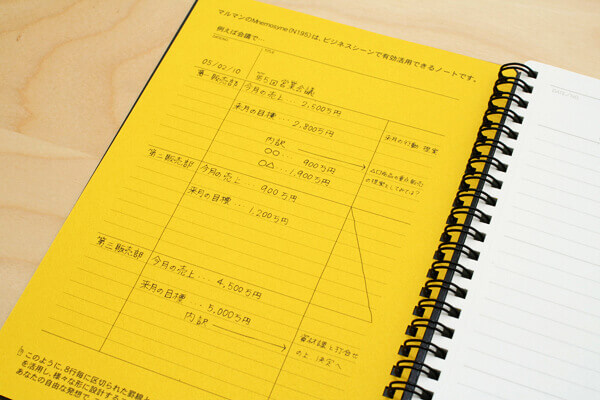 マルマンのMnemosyne(N195)は、ビジネスシーンで有効活用できるノートです。
例えば会議で…
05/02/10
第5回営業会議
第一販売部
今月の売上 … 2,500万円
来月の目標 … 2,800万円
内訳
○○ … 900万円
○△ … 1,900万円
来月の行動 提案
△□商品を重点販売
の提案をしてみよう?
第二販売部
今月の売上 … 900万円
来月の目標 … 1,200万円
第三販売部
今月の売上 … 4,500万円
来月の目標 … 5,000万円
内訳
営試課と打合せ
の上 決定へ
このように、8行毎に区切られた罫線と
を活用し、様々な形に設計するこ
あなたの自由な発想で、